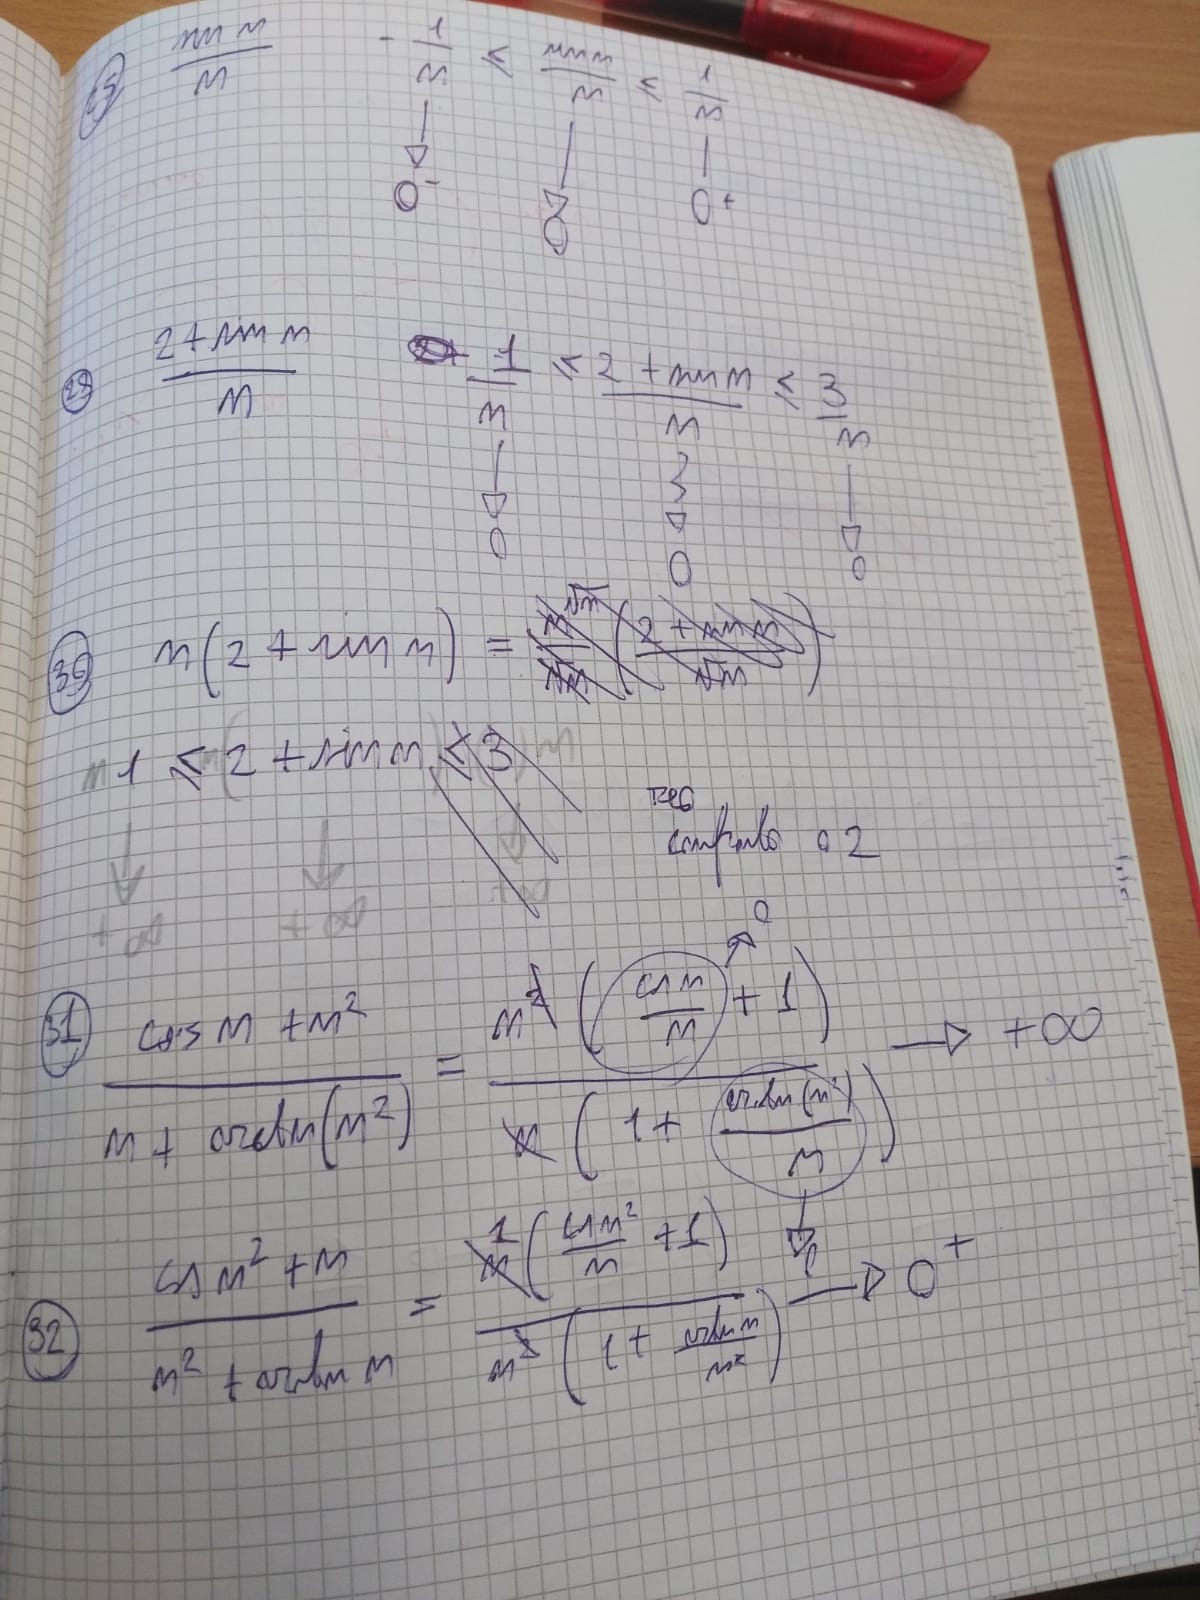 25) sin n / n    - 1/n ≤ sin n / n ≤ 1/n
0⁻    0    0⁺
29) 2 + sin n / n    1/n ≤ 2 + sin n / n ≤ 3/n
0    0    0
30) n(2 + sin n) = n√n/√n (2 + sin n / √n)
n 1 ≤ n(2 + sin n) ≤ 3 n
teo
confronto a 2
+∞    +∞    +∞
0
31) cos n + n² / n + arctan(n²) = n² (cos n / n + 1) / n (1 + arctan(n²) / n) → +∞
32) cos n² + n / n² + arctan n = n (cos n² / n + 1) / n² (1 + arctan n / n²) → 0⁺